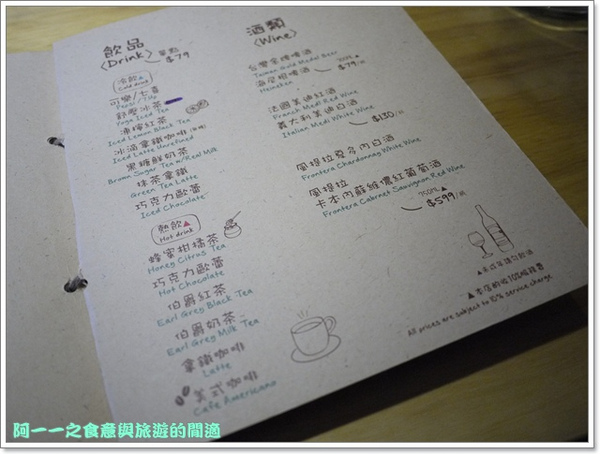 飲品
〈Drink〉 單點
$79
冷飲
Cold drink
可樂/七喜
Pepsi / 7 Up
舒壓冰茶
Yoga Iced Tea
凍檸紅茶
Iced Lemon Black Tea
冰滴拿鐵咖啡
Iced Latte
黑糖鮮奶茶
Brown Sugar Tea w/Real Milk
抹茶拿鐵
Green Tea Latte
巧克力歐蕾
Iced Chocolate
熱飲
Hot drink
蜂蜜柑橘茶
Honey Citrus Tea
巧克力歐蕾
Hot Chocolate
伯爵紅茶
Earl Grey Black Tea
伯爵奶茶
Earl Grey Milk Tea
拿鐵咖啡
Latte
美式咖啡
Cafe Americano
酒類
〈Wine〉
台灣金牌啤酒
Taiwan Gold Medal Beer
海尼根啤酒
Heineken
$79
法國美迪紅酒
French Medi Red Wine
義大利美迪白酒
Italian Medi White Wine
$130
風提拉夏多內白酒
Frontera Chardonnay White Wine
風提拉
卡本內蘇維濃紅葡萄酒
Frontera Cabernet Sauvignon Red Wine
750ML
$599
▲未成年請勿飲酒
▲本店酌收10%服務費
All prices are subject to 10% service charge.
阿一一之食意與旅遊的閒適